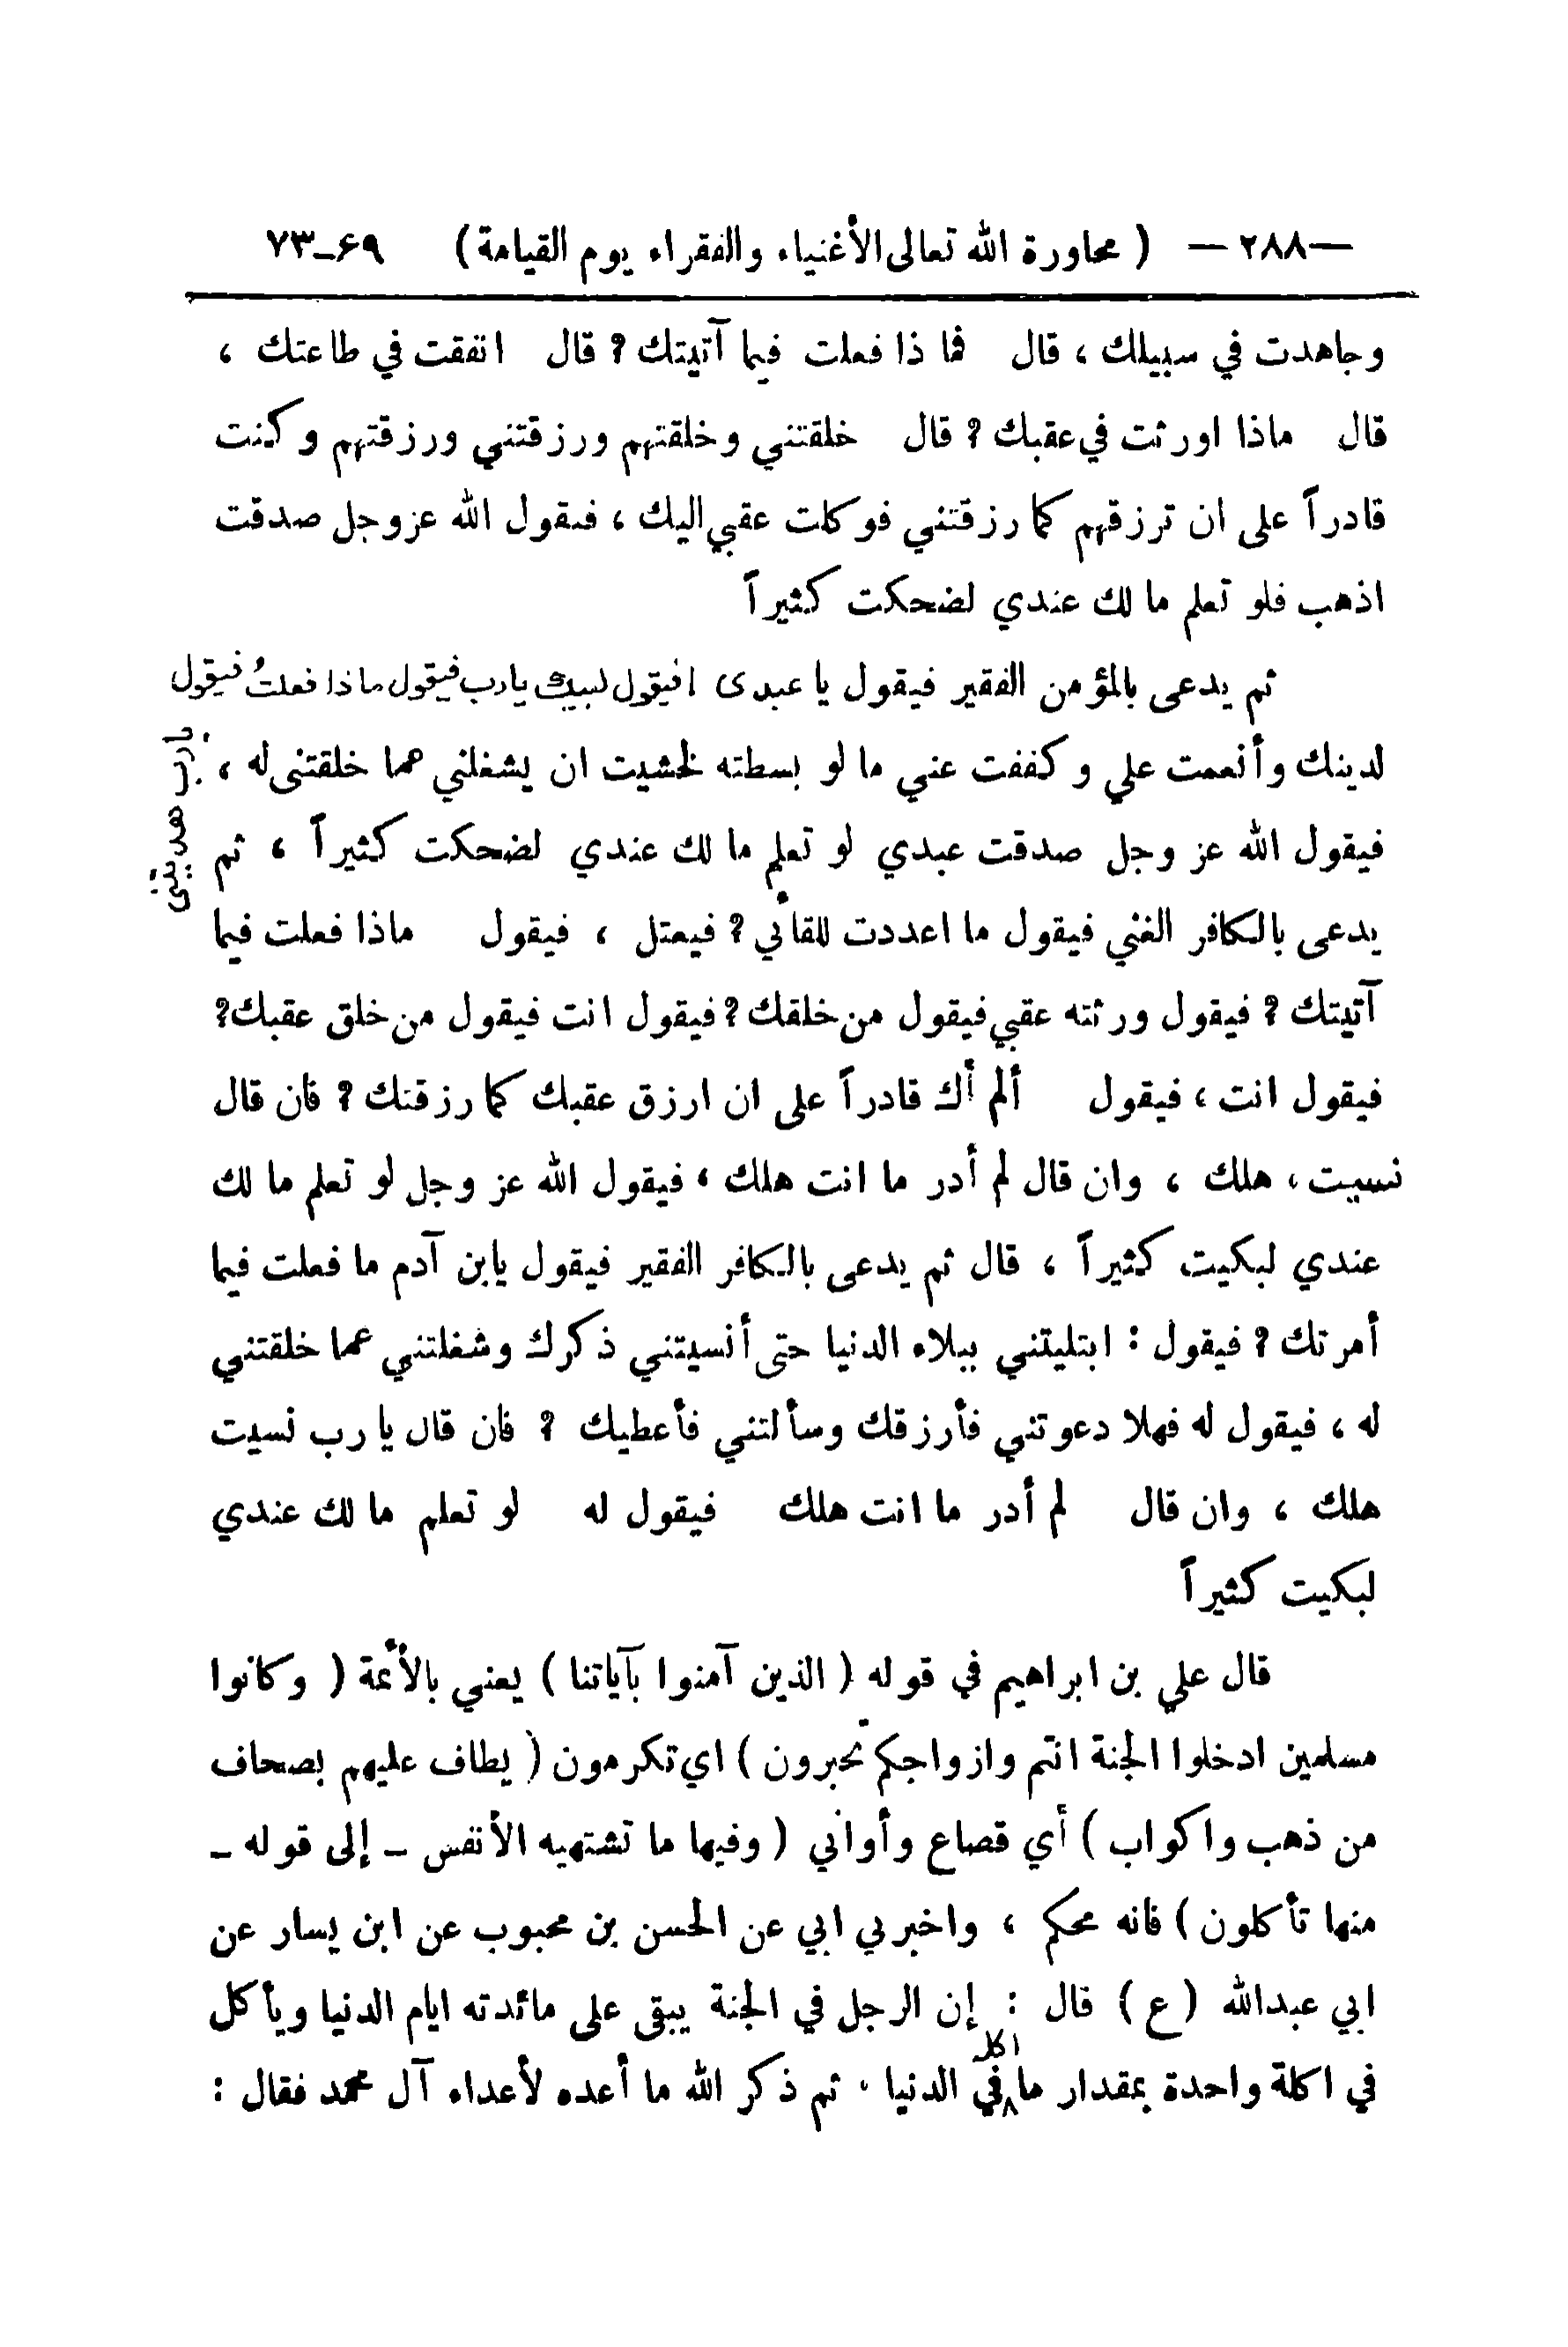 —٢٨٨— ( محاورة الله تعالى الأغنياء والفقراء يوم القيامة) ۶٩-٧٣
وجاهدت في سبيلك ، قال فما ذا فعلت فيما آتيتك ? قال انفقت في طاعتك ،
قال ماذا اورثت في عقبك ? قال خلقتني وخلقتهم ورزقتني ورزقتهم وكنت
قادراً على ان ترزقهم كما رزقتني فوكلت عقبي اليك ، فيقول الله عز وجل صدقت
اذهب فلو تعلم ما لك عندي لضحكت كثيراً
ثم يدعى بالمؤمن الفقير فيقول يا عبدى افيقول لبيك يارب فيقول ماذا فعلتُ فيقول
يارب هديتني
لدينك وأنعمت علي وكففت عني ما لو بسطته لخشيت ان يشغلني عما خلقتنى له ،
فيقول الله عز وجل صدقت عبدي لو تعلم ما لك عندي لضحكت كثيراً ، ثم
يدعى بالكافر الغني فيقول ما اعددت للقائي ? فيعتل ، فيقول ماذا فعلت فيما
آتيتك ? فيقول ورثته عقبي فيقول من خلقك ? فيقول انت فيقول من خلق عقبك?
فيقول انت ، فيقول ألم أك قادراً على ان ارزق عقبك كما رزقتك ? فان قال
نسيت ، هلك ، وان قال لم أدر ما انت هلك ، فيقول الله عز وجل لو تعلم ما لك
عندي لبكيت كثيراً ، قال ثم يدعى بالكافر الفقير فيقول يابن آدم ما فعلت فيما
أمرتك ? فيقول : ابتليتني ببلاء الدنيا حتى أنسيتني ذكرك وشغلتني عما خلقتني
له ، فيقول له فهلا دعوتني فأرزقك وسألتني فأعطيك ? فان قال يا رب نسيت
هلك ، وان قال لم أدر ما انت هلك فيقول له لو تعلم ما لك عندي
لبكيت كثيراً
قال علي بن ابراهيم في قوله ( الذين آمنوا بآياتنا ) يعني بالأئمة ( وكانوا
مسلمين ادخلوا الجنة انتم وازواجكم تحبرون ) اي تكرمون ( يطاف عليهم بصحاف
من ذهب واكواب ) أي قصاع وأواني ( وفيها ما تشتهيه الأنفس - إلى قوله -
منها تأكلون ) فانه محكم ، واخبرني ابي عن الحسن بن محبوب عن ابن يسار عن
ابي عبدالله ( ع ) قال : إن الرجل في الجنة يبقى على مائدته ايام الدنيا ويأكل
في اكلة واحدة بمقدار ما اكله في الدنيا . ثم ذكر الله ما أعده لأعداء آل محمد فقال :